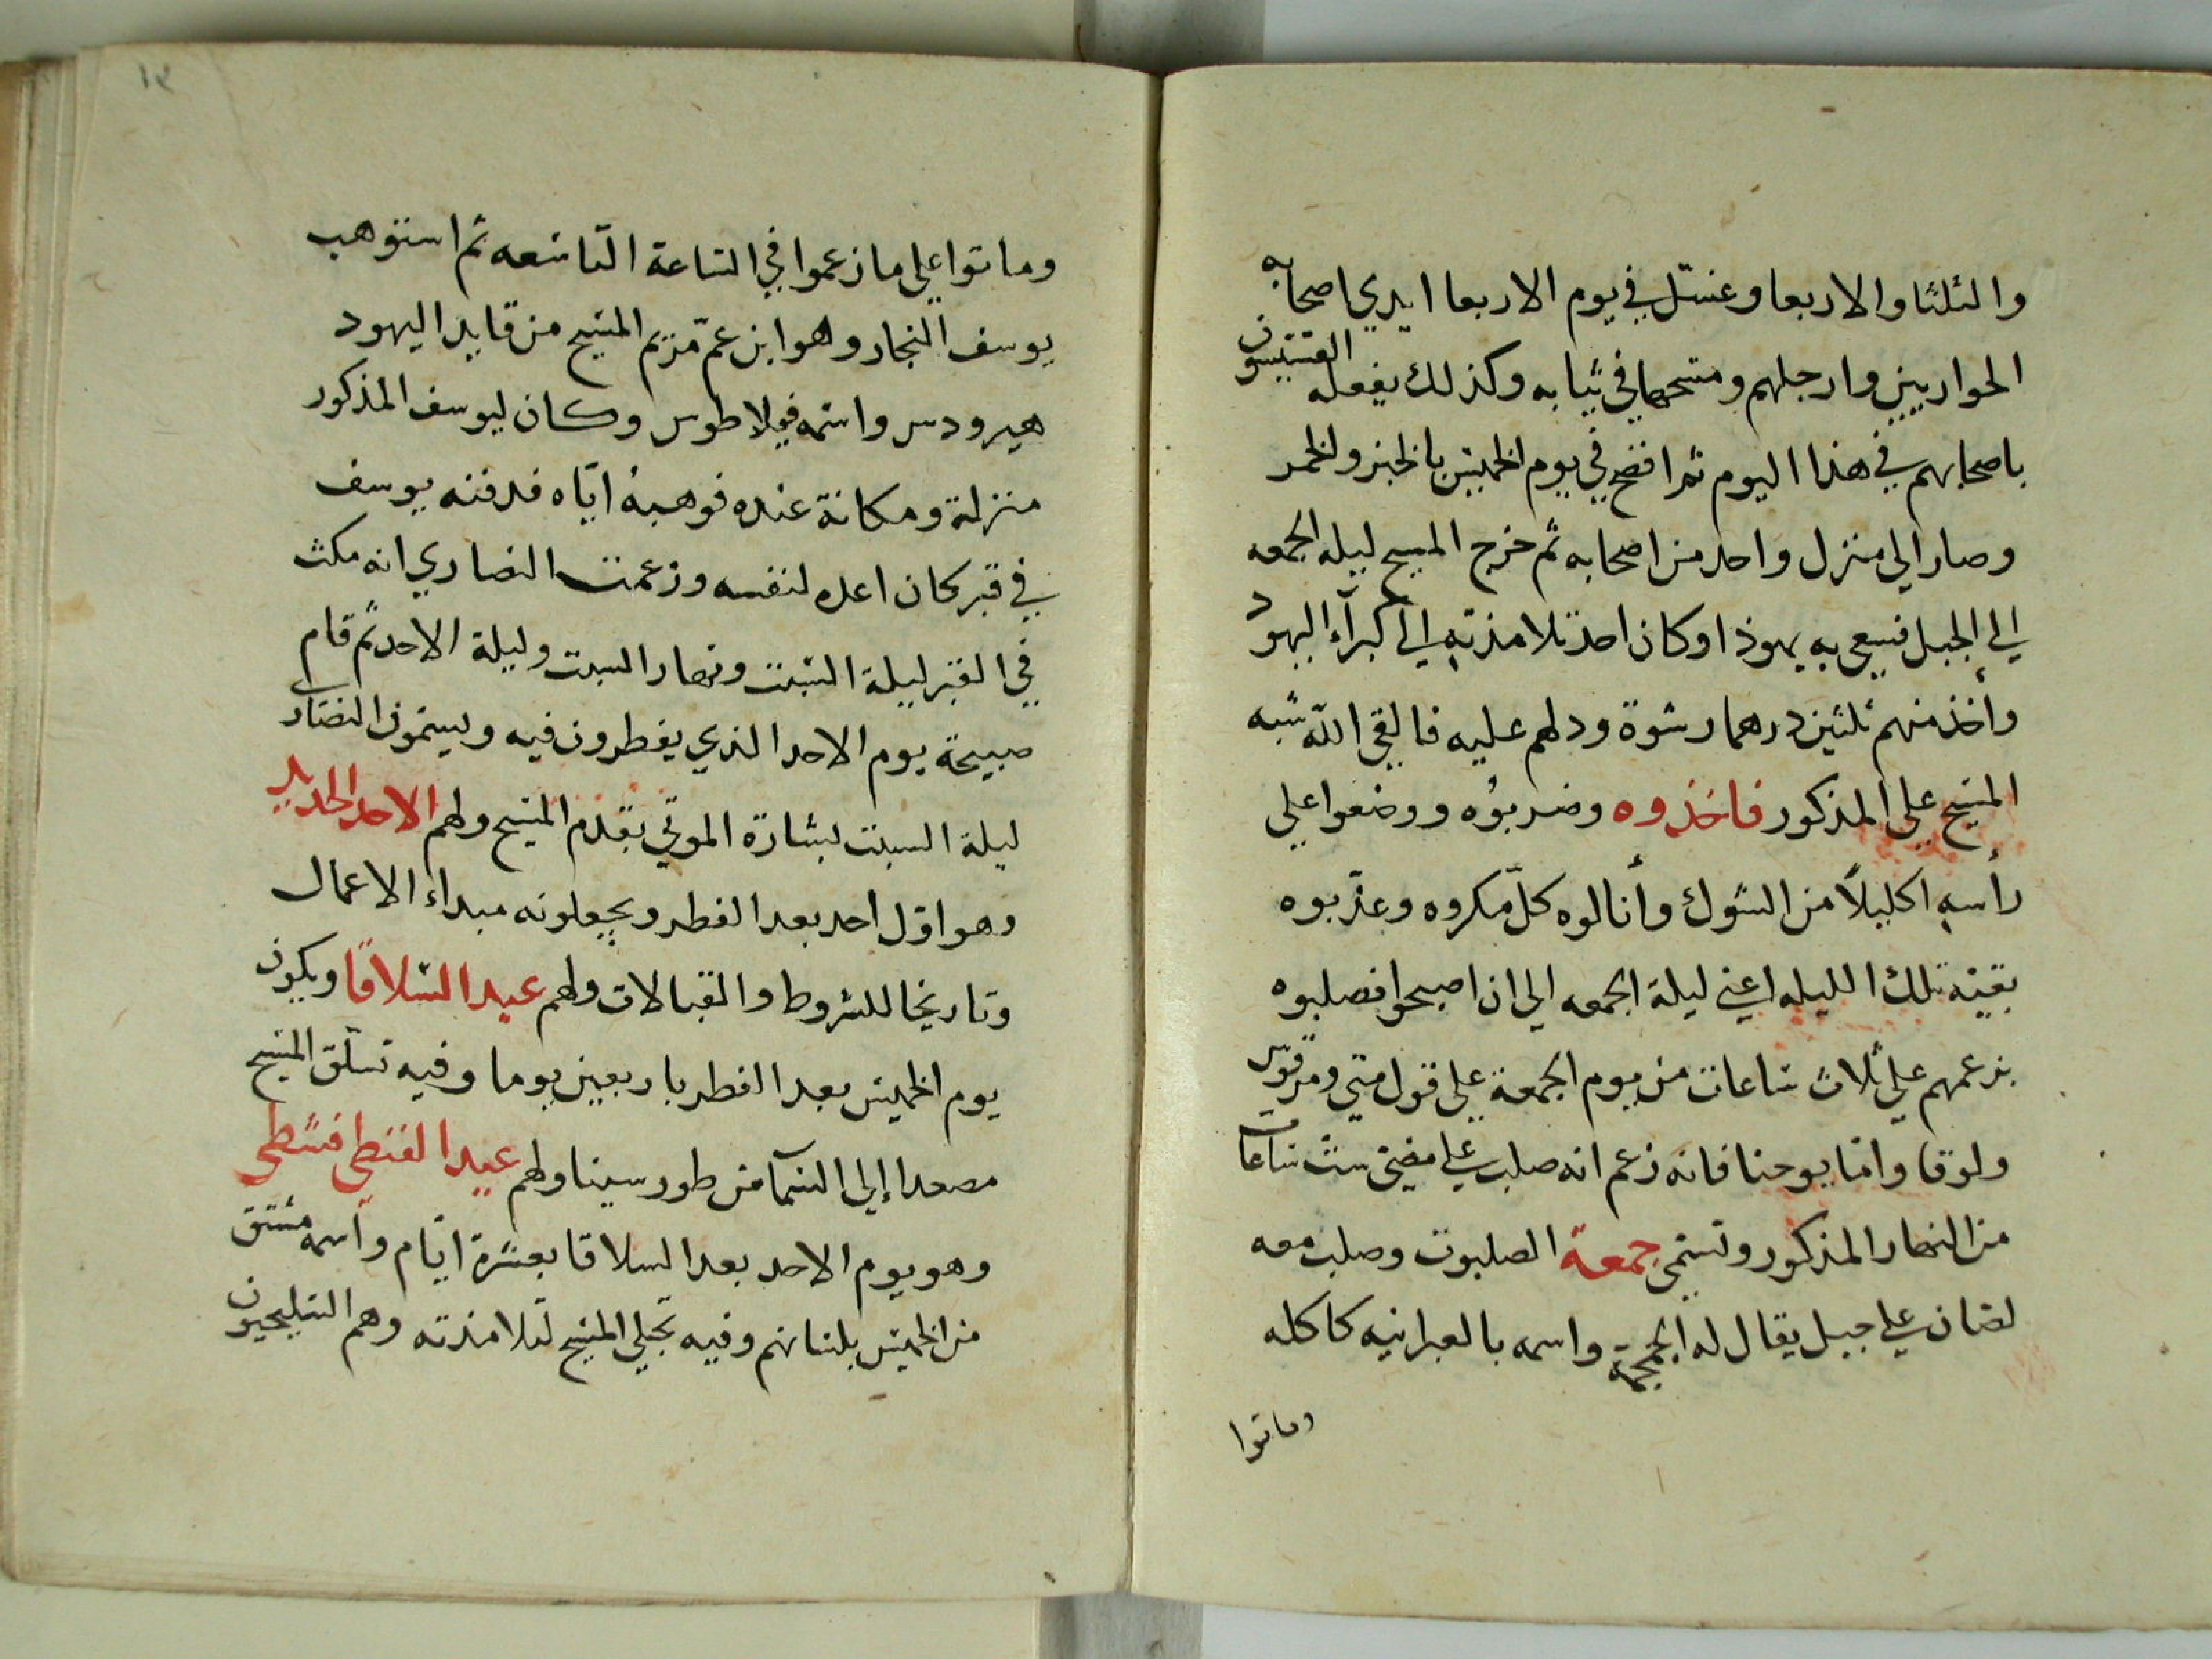 والثلثا والاربعا وغسّل في يوم الاربعا ايدي اصحابه
الحواريين وارجلهم ومسحهما في ثيابه وكذلك يفعله القسيسون
باصحابهم في هذا اليوم ثم افصح في يوم الخميس بالخبز والخمر
وصار الي منزل واحد من اصحابه ثم خرج المسيح ليله الجمعه
الي الجبل فسعي به يهوذا وكان احد تلامذته الي كبرآء اليهود
وأخذ منهم ثلثين درهما رشوة ودلهم عليه فالقي الله شبه
المسيح علي المذكور فاخذوه وضربوُه ووضعوا علي
رأسهِ اكليلاً من الشوك وأنالوه كلّ مكروه وعذّبوه
بقيّة تلك الليله اعني ليلة الجمعه الي ان اصبحوا فصلبوه
بزعمهم علي ثلاث ساعات من يوم الجمعة علي قول متي ومرقوس
ولوقا وامّا يوحنا فانه زعم انه صلب علي مضي ست ساعات
من النهار المذكور وتسمّي جمعة الصلبوت وصلب معه
لصّان علي جبل يقال له الجمجمة واسمه بالعبرانيه كاكله
وماتوا
١٤
وماتوا علي ما زعموا في الساعة التّاسعه ثم استوهب
يوسف النجار وهو ابن عمّ مريم المسيح من قايد اليهود
هيرودس واسمه فيلاطوس وكان ليوسف المذكور
منزلة ومكانة عنده فوهبهُ ايّاه فدفنه يوسف
في قبر كان اعده لنفسه وزعمت النصاري انه مكث
في القبر ليلة السّبت ونهار السبت وليلة الاحد ثم قام
صبيحة يوم الاحد الذي يفطرون فيه ويسمّون النصاري
ليلة السبت بشارة الموتي بقدم المسيح ولهم الاحد الحديد
وهو اوّل احد بعد الفطر ويجعلونه مبداء الاعمال
وتاريخا للشروط والقبالات ولهم عيد السّلاقا ويكون
يوم الخميس بعد الفطر باربعين يوما وفيه تسلّق المسيح
مصعدا إلي السمآ من طور سينا ولهم عيد الفنطي فسطي
وهو يوم الاحد بعد السلاقا بعشرة ايّام وأسمه مشتق
من الخميس بلسانهم وفيه تجلي المسيح لتلامذته وهم السليحيون